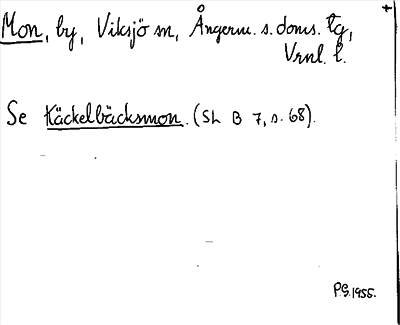 Mon, by, Viksjö sn, Ångerm. s. doms. tg,
Vrnl. l.
Se Käckelbäcksmon. (SL B 7, s. 68).
P.G. 1955.